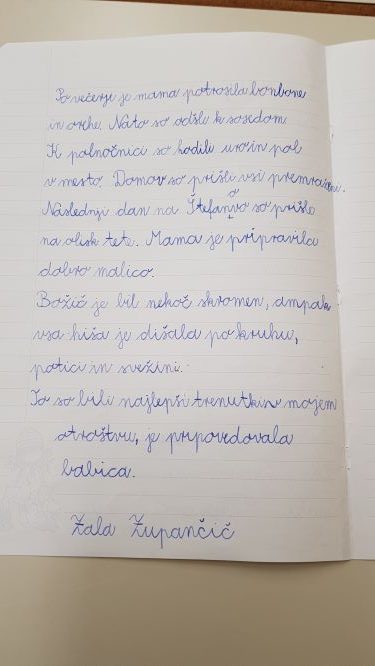 Po večerji je mama potrosila bonbone
in orehe. Nato so odšli k sosedom.
K polnočnici so hodili uro in pol
v mesto. Domov so prišli vsi premraženi.
Naslednji dan na Štefanovo so prišle
na obisk tete. Mama je pripravila
dobro malico.
Božič je bil nekoč skromen, ampak
vsa hiša je dišala po kruhu,
potici in svežini.
To so bili najlepši trenutki v mojem
otroštvu, je pripovedovala
babica.
Zala Zupančič